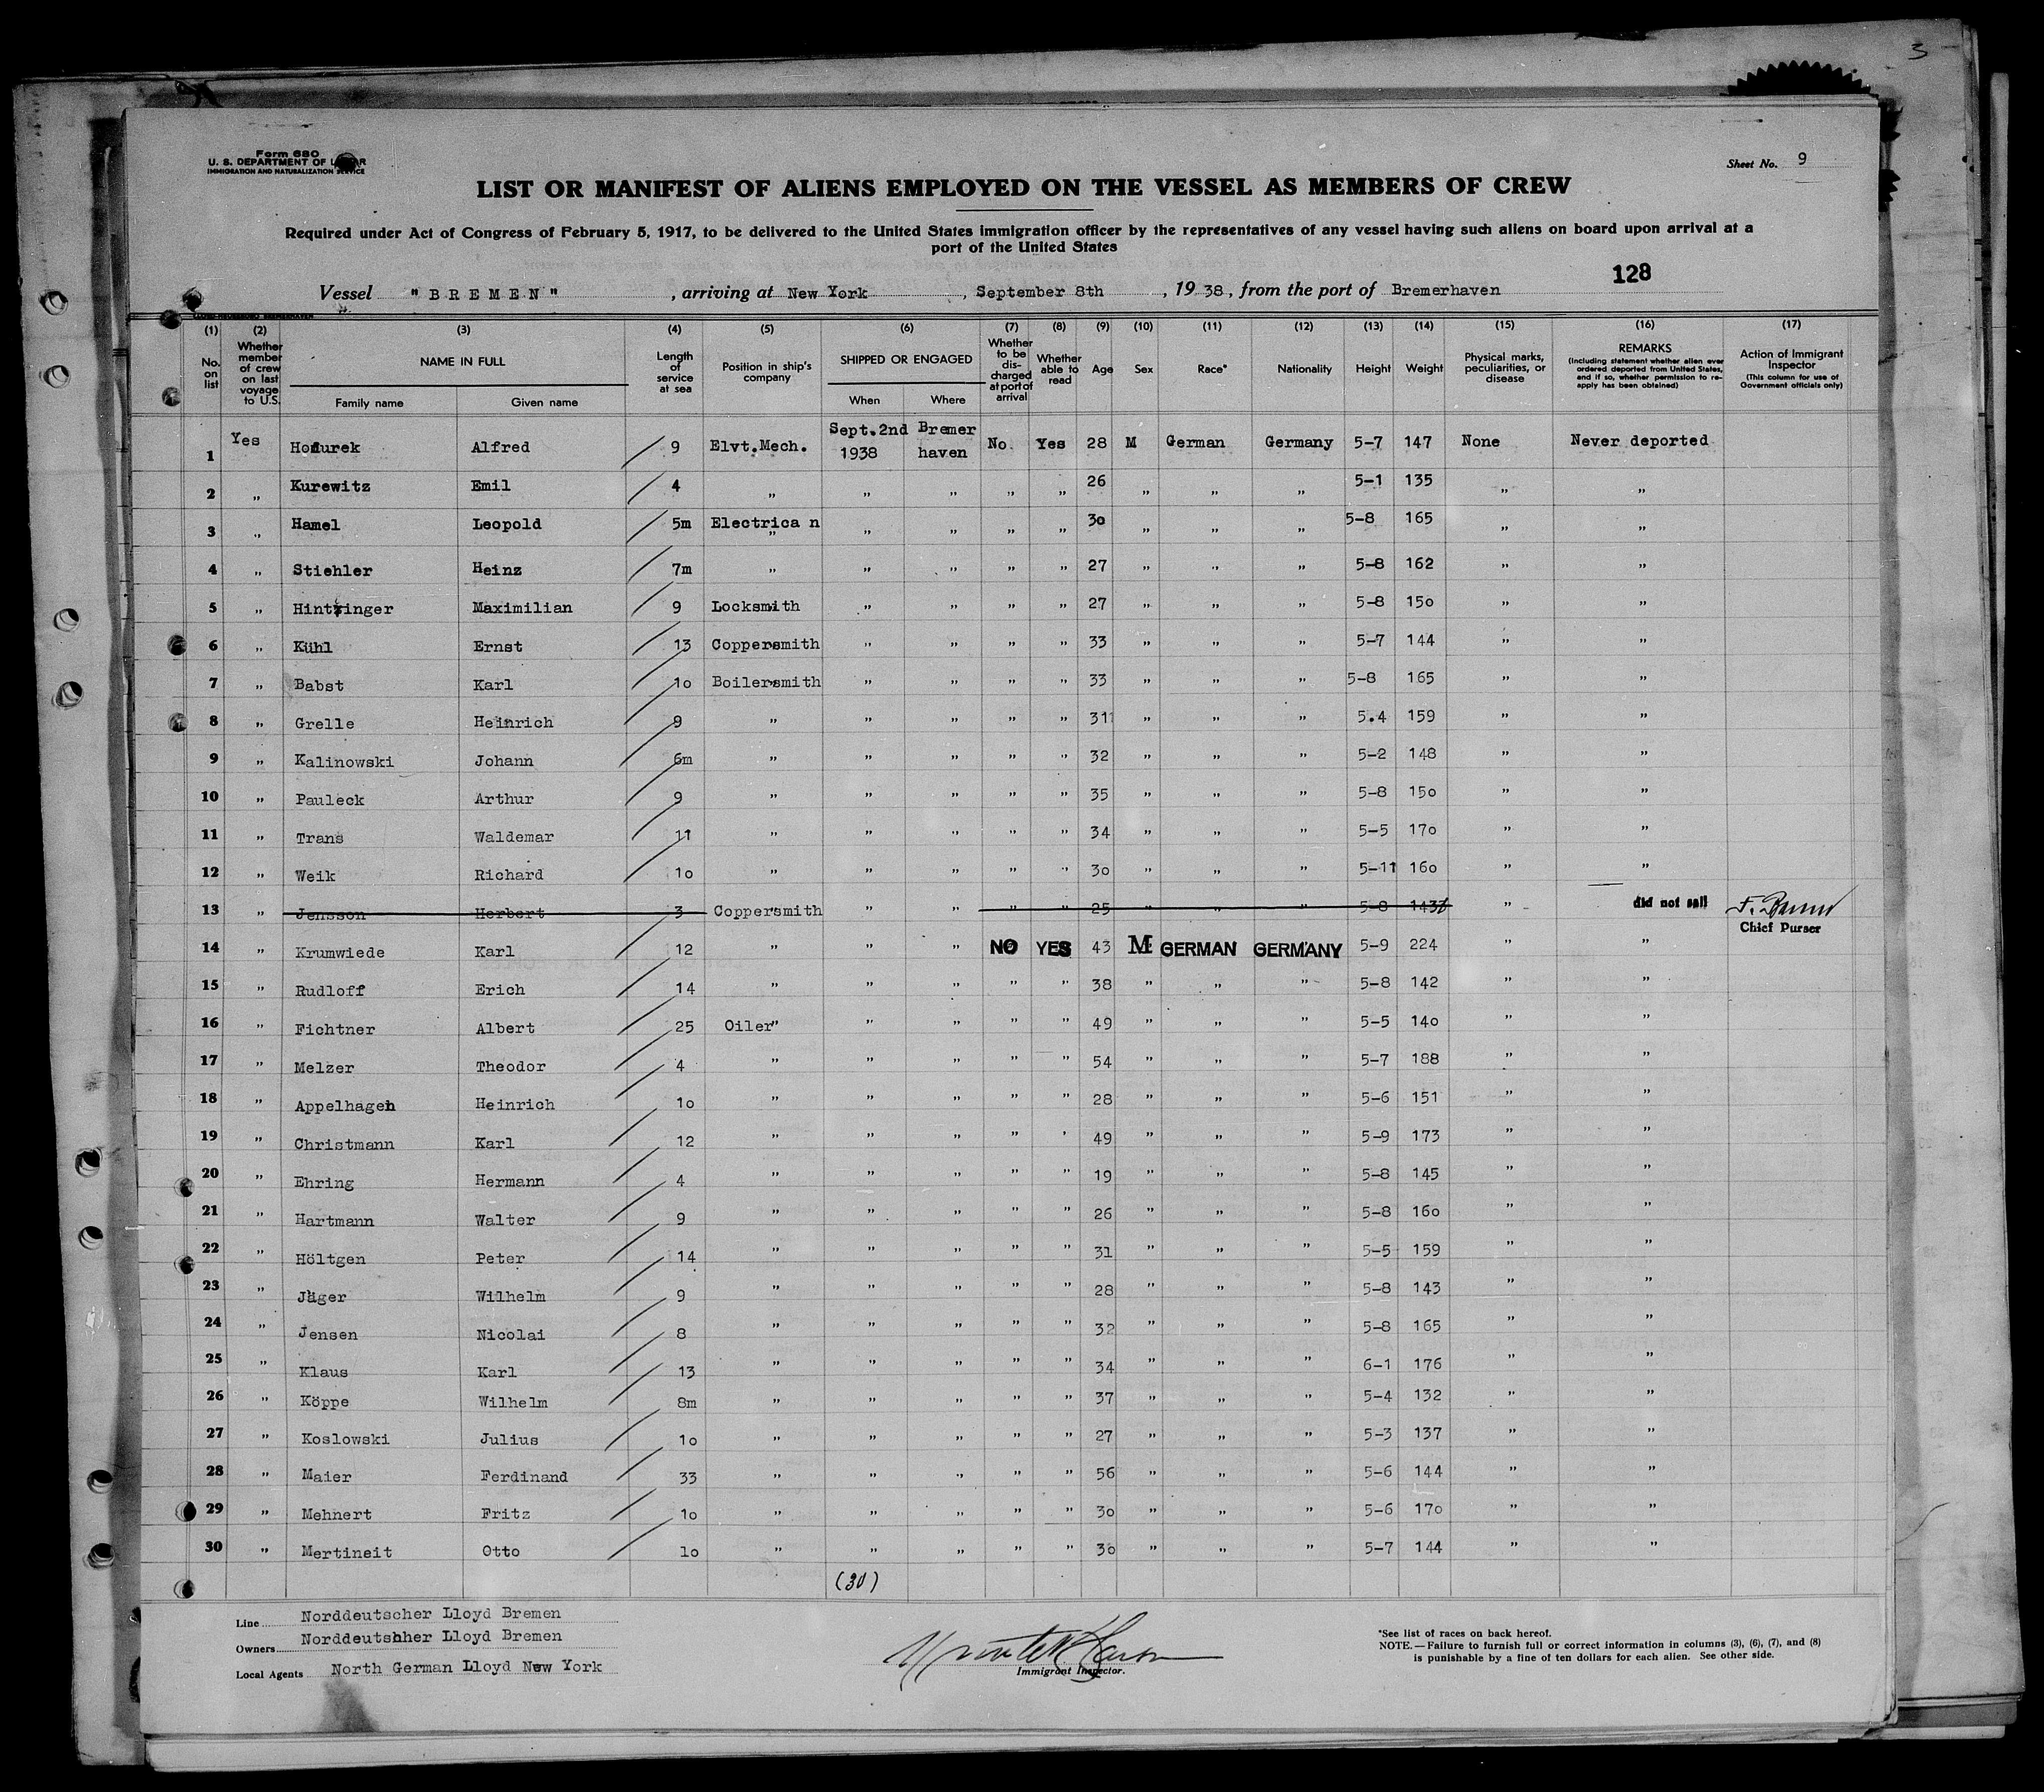 3
Form 680
U. S. DEPARTMENT OF LABOR
IMMIGRATION AND NATURALIZATION SERVICE
Sheet No. 9
LIST OR MANIFEST OF ALIENS EMPLOYED ON THE VESSEL AS MEMBERS OF CREW
Required under Act of Congress of February 5, 1917, to be delivered to the United States immigration officer by the representatives of any vessel having such aliens on board upon arrival at a
port of the United States
128
Vessel "BREMEN", arriving at New York, September 8th, 19 38, from the port of Bremerhaven
(1) (2) (3) (4) (5) (6) (7) (8) (9) (10) (11) (12) (13) (14) (15) (16) (17)
No. on list
Whether member of crew on last voyage to U.S.
NAME IN FULL
Family name Given name
Length of service at sea
Position in ship's company
SHIPPED OR ENGAGED
When Where
Whether to be discharged at port of arrival
Whether able to read
Age Sex Race* Nationality Height Weight
Physical marks, peculiarities, or disease
REMARKS
(Including statement whether alien ever ordered deported from United States, and if so, whether permission to reapply has been obtained)
Action of Immigrant Inspector
(This column for use of Government officials only)
1 Yes Homurek Alfred 9 Elvt.Mech. Sept.2nd 1938 Bremer haven No Yes 28 M German Germany 5-7 147 None Never deported
2 " Kurewitz Emil 4 " " " " " 26 " " " 5-1 135 " "
3 " Hamel Leopold 5m Electrica n " " " " " 30 " " " 5-8 165 " "
4 " Stiehler Heinz 7m " " " " " 27 " " " 5-8 162 " "
5 " Hintzinger Maximilian 9 Locksmith " " " " 27 " " " 5-8 150 " "
6 " Kühl Ernst 13 Coppersmith " " " " 33 " " " 5-7 144 " "
7 " Babst Karl 10 Boilersmith " " " " 33 " " " 5-8 165 " "
8 " Grelle Heinrich 9 " " " " " 31 " " " 5.4 159 " "
9 " Kalinowski Johann 6m " " " " " 32 " " " 5-2 148 " "
10 " Pauleck Arthur 9 " " " " " 35 " " " 5-8 150 " "
11 " Trans Waldemar 11 " " " " " 34 " " " 5-5 170 " "
12 " Weik Richard 10 " " " " " 30 " " " 5-11 160 " "
13 " Jensson Herbert 3 Coppersmith " " " " 25 " " " 5-8 143 " did not sail
Chief Purser
14 " Krumwiede Karl 12 " " " NO YES 43 M GERMAN GERMANY 5-9 224 " "
15 " Rudloff Erich 14 " " " " " 38 " " " 5-8 142 " "
16 " Fichtner Albert 25 Oiler " " " " " 49 " " " 5-5 140 " "
17 " Melzer Theodor 4 " " " " " 54 " " " 5-7 188 " "
18 " Appelhagen Heinrich 10 " " " " " 28 " " " 5-6 151 " "
19 " Christmann Karl 12 " " " " " 49 " " " 5-9 173 " "
20 " Ehring Hermann 4 " " " " " 19 " " " 5-8 145 " "
21 " Hartmann Walter 9 " " " " " 26 " " " 5-8 160 " "
22 " Höltgen Peter 14 " " " " " 31 " " " 5-5 159 " "
23 " Jäger Wilhelm 9 " " " " " 28 " " " 5-8 143 " "
24 " Jensen Nicolai 8 " " " " " 32 " " " 5-8 165 " "
25 " Klaus Karl 13 " " " " " 34 " " " 6-1 176 " "
26 " Köppe Wilhelm 8m " " " " " 37 " " " 5-4 132 " "
27 " Koslowski Julius 10 " " " " " 27 " " " 5-3 137 " "
28 " Maier Ferdinand 33 " " " " " 56 " " " 5-6 144 " "
29 " Mehnert Fritz 10 " " " " " 30 " " " 5-6 170 " "
30 " Mertineit Otto 10 " " " " " 30 " " " 5-7 144 " "
(30)
Line Norddeutscher Lloyd Bremen
Owners Norddeutshher Lloyd Bremen
Local Agents North German Lloyd New York
Immigrant Inspector.
*See list of races on back hereof.
NOTE.—Failure to furnish full or correct information in columns (3), (6), (7), and (8)
is punishable by a fine of ten dollars for each alien. See other side.